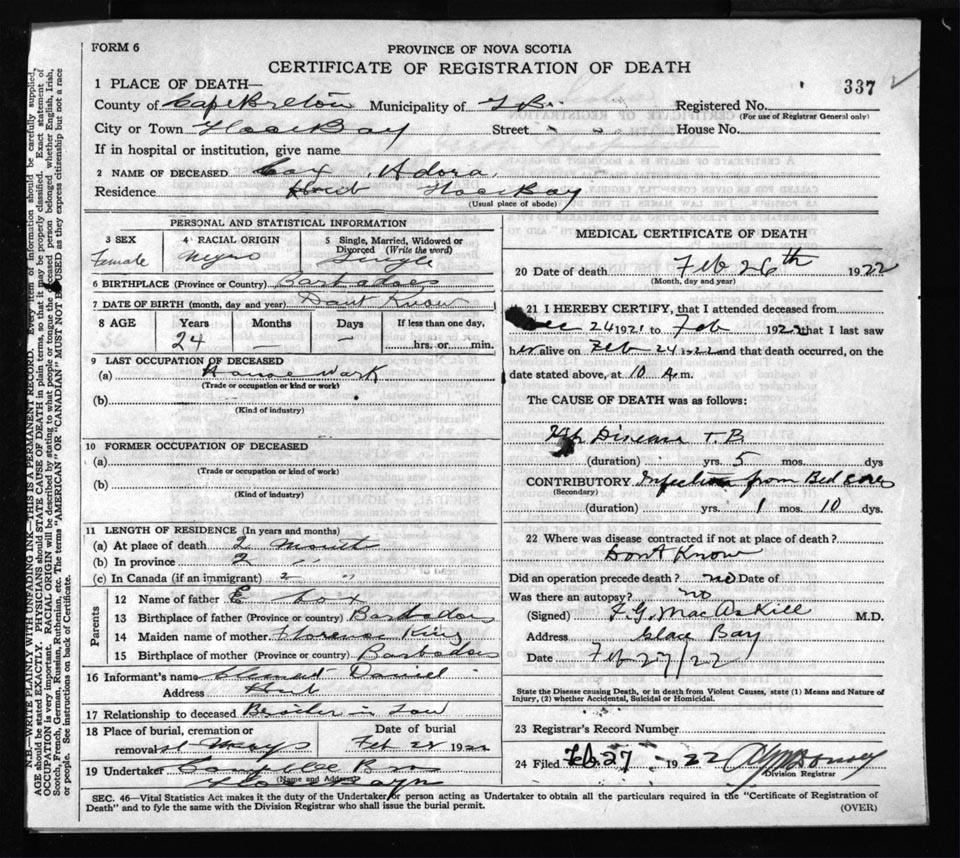 FORM 6
PROVINCE OF NOVA SCOTIA
CERTIFICATE OF REGISTRATION OF DEATH
337
1 PLACE OF DEATH—
County of Cape Breton Municipality of Registered No.
(For use of Registrar General only)
City or Town Glace Bay Street House No.
If in hospital or institution, give name
2 NAME OF DECEASED Cox, Adora,
Residence Glace Bay
(Usual place of abode)
N.B.—WRITE PLAINLY WITH UNFADING INK—THIS IS A PERMANENT RECORD. Every item of information should be carefully supplied.
AGE should be stated EXACTLY. PHYSICIANS should STATE CAUSE OF DEATH in plain terms, so that it may be properly classified. Exact statement of
OCCUPATION is very important. RACIAL ORIGIN will be described by stating to what people or tongue the deceased person belonged whether English, Irish,
Scotch, French, German, Russian, Ruthenian, etc. The terms "AMERICAN" OR "CANADIAN" MUST NOT BE USED as they express citizenship but not a race
or people. See instructions on back of Certificate.
PERSONAL AND STATISTICAL INFORMATION
3 SEX
Female
4 RACIAL ORIGIN
Negro
5 Single, Married, Widowed or
Divorced (Write the word)
Single
6 BIRTHPLACE (Province or Country) Barbadoes
7 DATE OF BIRTH (month, day and year) Dont Know
8 AGE
Years
24
Months
—
Days
—
If less than one day,
hrs. or min.
9 LAST OCCUPATION OF DECEASED
(a) House Work
(Trade or occupation or kind of work)
(b)
(Kind of industry)
10 FORMER OCCUPATION OF DECEASED
(a)
(Trade or occupation or kind of work)
(b)
(Kind of industry)
11 LENGTH OF RESIDENCE (In years and months)
(a) At place of death 2 Month
(b) In province 2 "
(c) In Canada (if an immigrant) 2 "
Parents
12 Name of father E Cox
13 Birthplace of father (Province or country) Barbadoes
14 Maiden name of mother Florence King
15 Birthplace of mother (Province or country) Barbadoes
16 Informant's name Daniel
Address
17 Relationship to deceased Brother in Law
18 Place of burial, cremation or
removal St Marys
Date of burial
Feb 28 1922
19 Undertaker Bros
(Name and Address)
Glace Bay
MEDICAL CERTIFICATE OF DEATH
20 Date of death Feb 26th 1922
(Month, day and year)
21 I HEREBY CERTIFY, that I attended deceased from
Dec 24 1921 to Feb 1922 that I last saw
her alive on Feb 24 1922 and that death occurred, on the
date stated above, at 10 A.m.
The CAUSE OF DEATH was as follows:
Hip Disease T.B.
(duration) yrs. 5 mos. dys
CONTRIBUTORY Infection from Bed sores
(Secondary)
(duration) yrs. 1 mos. 10 dys.
22 Where was disease contracted if not at place of death?
Dont Know
Did an operation precede death? no Date of
Was there an autopsy? no
(Signed) MacAskill M.D.
Address Glace Bay
Date Feb 27/22
State the Disease causing Death, or in death from Violent Causes, state (1) Means and Nature of
Injury, (2) whether Accidental, Suicidal or Homicidal.
23 Registrar's Record Number
24 Filed Feb 27 1922
Division Registrar
SEC. 46—Vital Statistics Act makes it the duty of the Undertaker or person acting as Undertaker to obtain all the particulars required in the "Certificate of Registration of
Death" and to fyle the same with the Division Registrar who shall issue the burial permit.
(OVER)